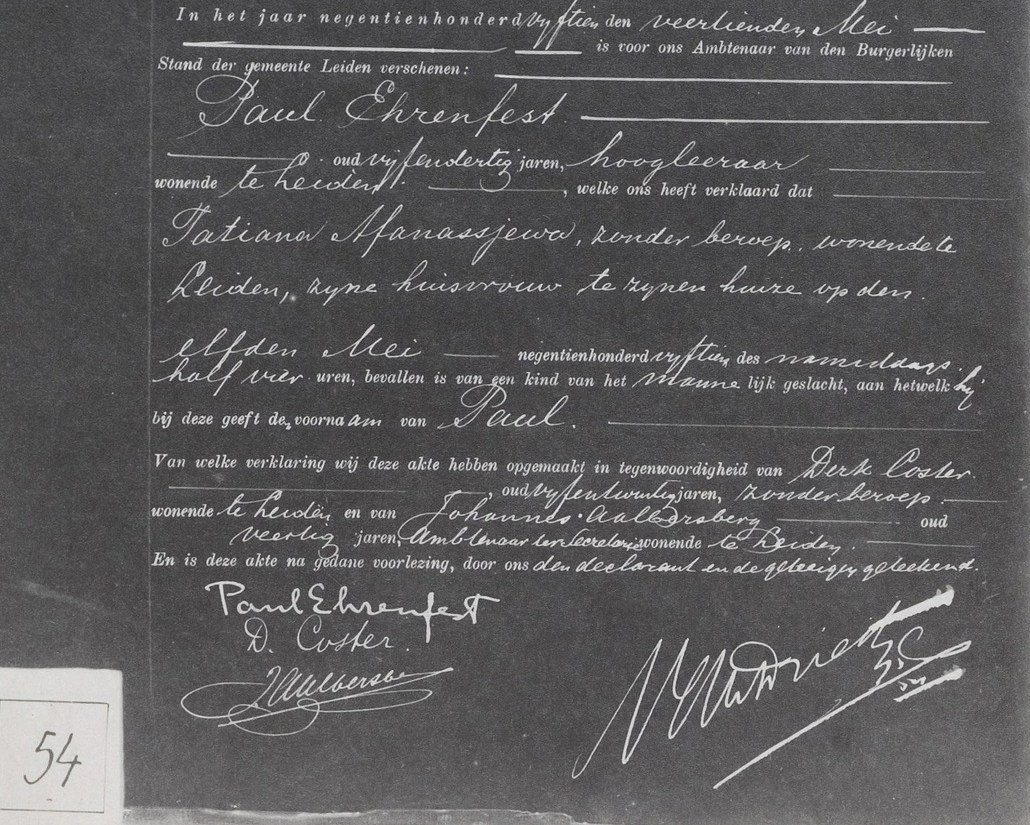 In het jaar negentienhonderd vyftien den veertienden Mei
is voor ons Ambtenaar van den Burgerlijken
Stand der gemeente Leiden verschenen:
Paul Ehrenfest
oud vyfendertig jaren, hoogleeraar
wonende te Leiden, welke ons heeft verklaard dat
Tatiana Afanassjewa, zonder beroep, wonende te
Leiden, zyne huisvrouw te zynen huize op den
elfden Mei negentienhonderd vyftien des namiddags
half vier uren, bevallen is van een kind van het mannelijk geslacht, aan hetwelk hij
bij deze geeft de voornaam van Paul.
Van welke verklaring wij deze akte hebben opgemaakt in tegenwoordigheid van Derk Coster
oud vyfentwintig jaren, zonder beroep
wonende te Leiden en van Johannes Aalbersberg oud
veertig jaren, Ambtenaar ter secretarie wonende te Leiden.
En is deze akte na gedane voorlezing, door ons den declarant en de getuigen geteekend.
Paul Ehrenfest
D. Coster
JAalbersbe
54